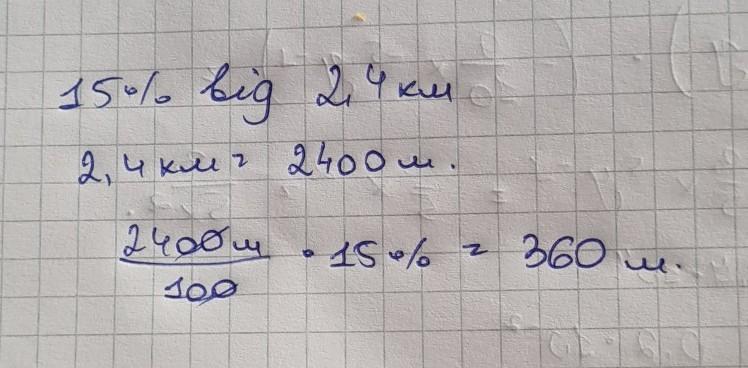 15% від 2,4 км
2,4 км = 2400 м.
2400 м
100
· 15% = 360 м.